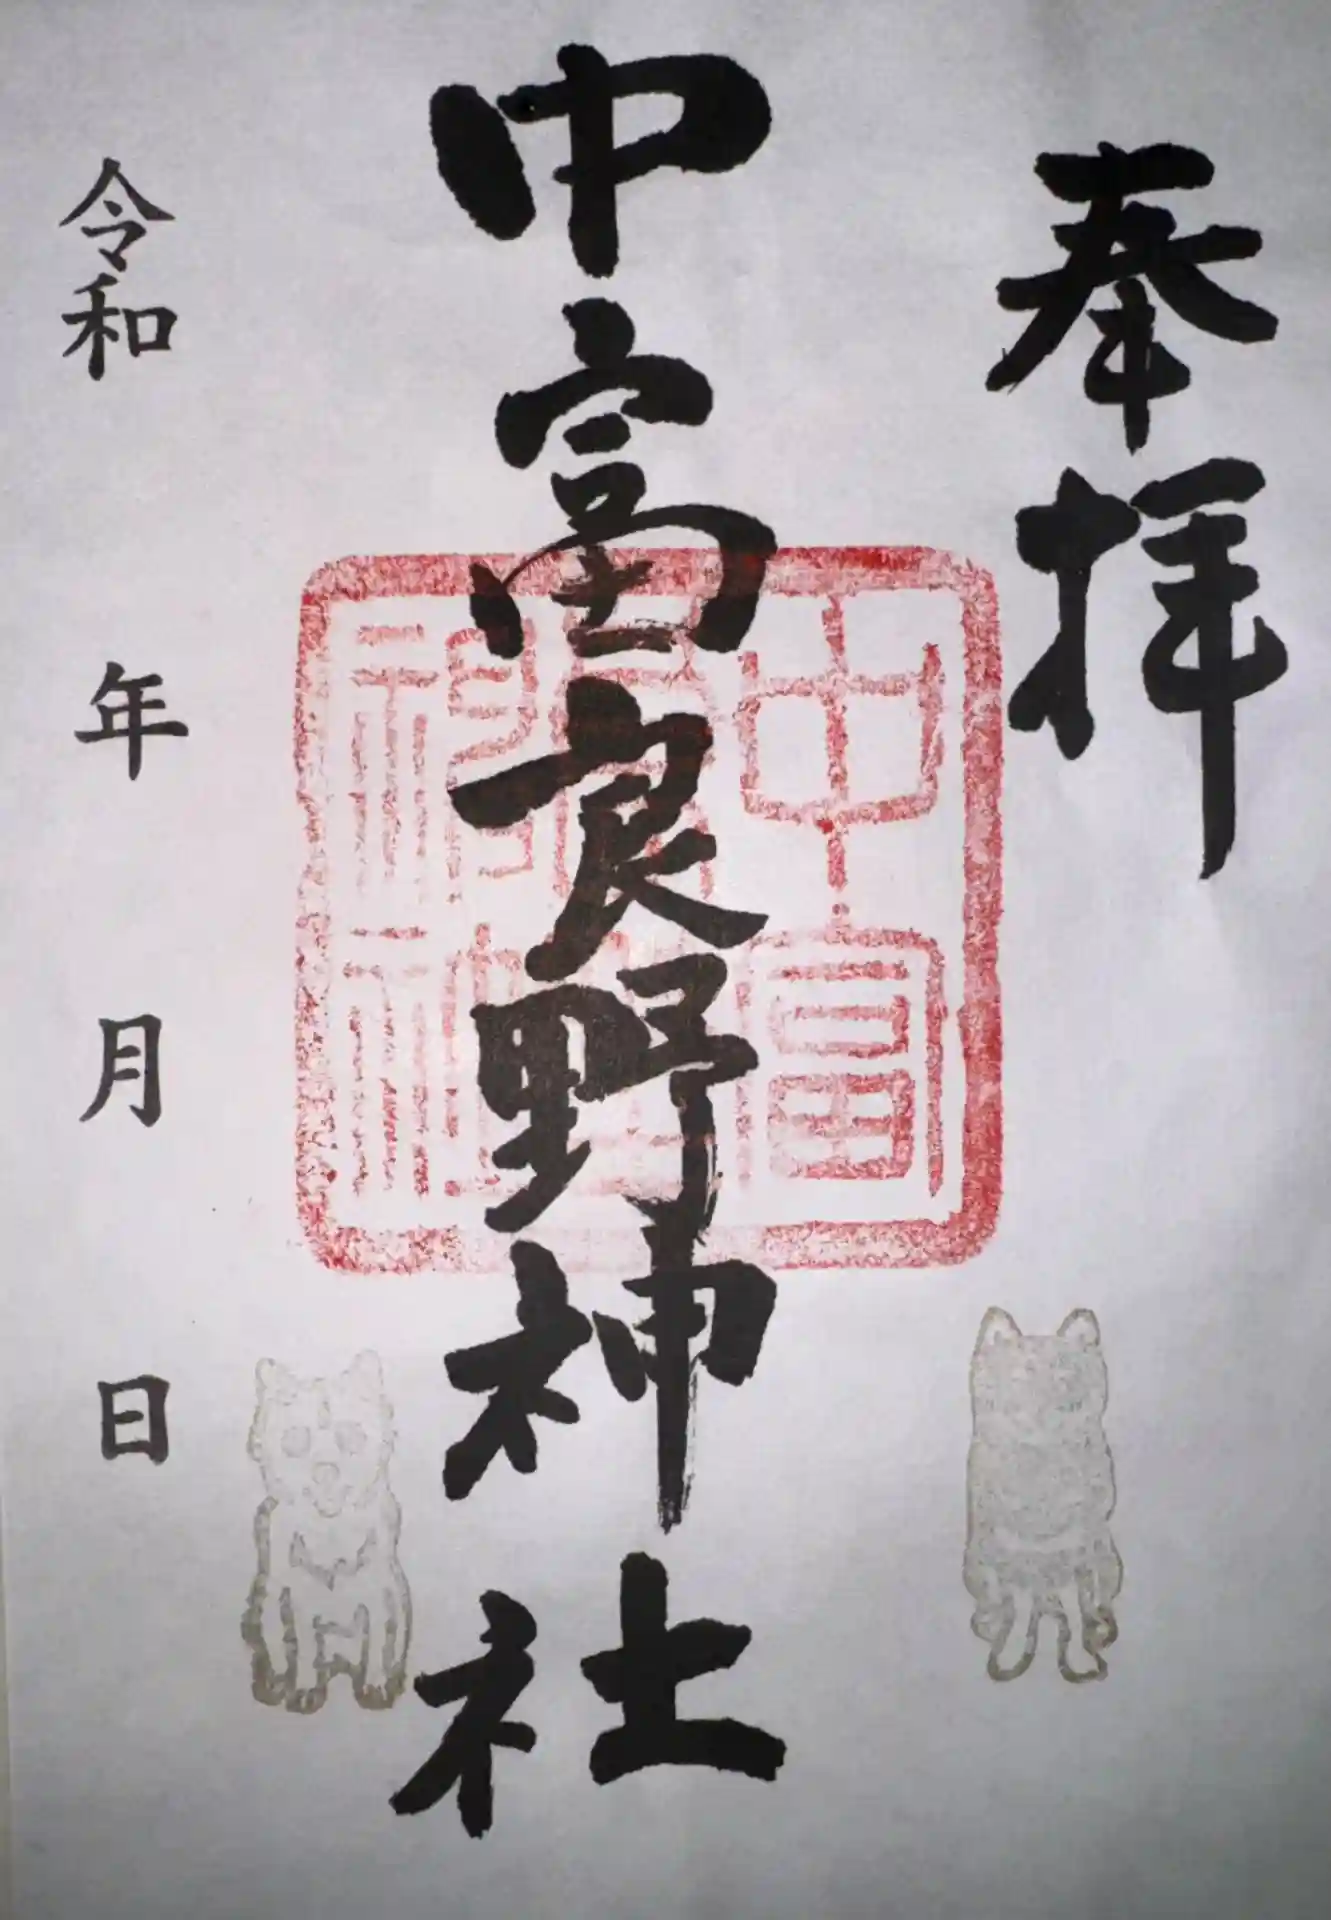 奉拝
中富良野神社
中富良野神社
令和 年 月 日